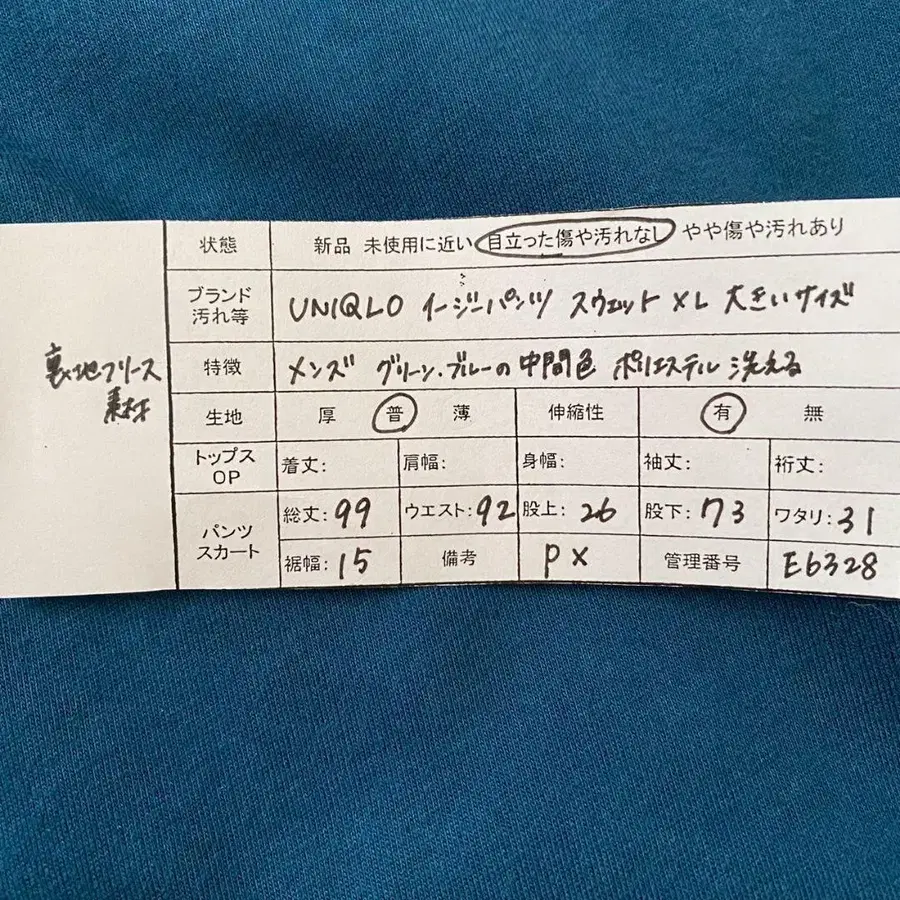 状態 新品 未使用に近い 目立った傷や汚れなし やや傷や汚れあり
ブランド 汚れ等 UNIQLO イージーパンツ スウェット XL 大きいサイズ
裏地フリース
素材
特徴 メンズ グリーン.ブルーの中間色 ポリエステル 洗える
生地 厚 普 薄 伸縮性 有 無
トップス OP 着丈: 肩幅: 身幅: 袖丈: 裄丈:
パンツ スカート 総丈:99 ウエスト:92 股上:26 股下:73 ワタリ:31
裾幅:15 備考 PX 管理番号 E6328